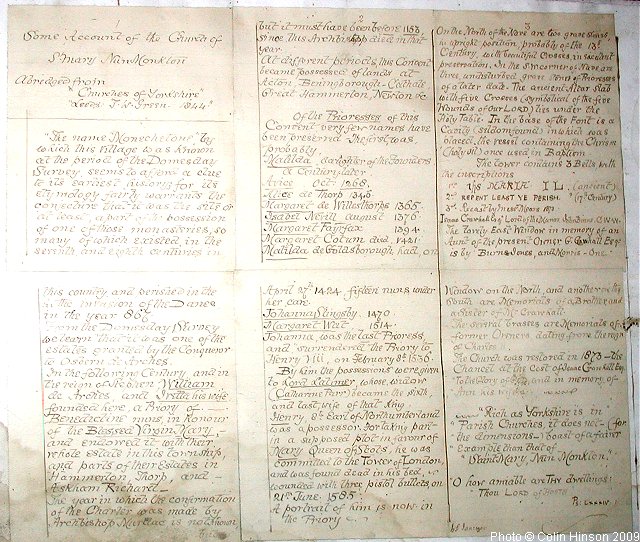 1
Some Account of the Church of
St Mary Nun Monkton
Abridged from
"Churches of Yorkshire"
Leeds T. W. Green. 1844
"The name Monechetone" by
which this Village was Known
at the period of the Domesday
Survey seems to afford a clue
to its earliest history for its
etymology fairly warrants the
conjecture that it was the site or
at least a part of the possession
of one of those monasteries, so
many of which existed in the
seventh and eighth centuries in
this country and perished in the
invasion of the Danes
in the year 867
From the Domesday Survey
we learn that it was one of the
estates granted by the Conqueror
to Osbern de Arches
In the following Century, and in
the reign of Stephen William
de Arches, and Ivetta his wife
founded here, a Priory of
Benedictine nuns, in honour
of the Blessed Virgin Mary,
and endowed it with their
whole estate in this township
and parts of their Estates in
Hammerton, Thorp, and
Askham Richard.
The year in which the confirmation
of the Charter was made by
Archbishop Murdac is not known
2
but it must have been before 1153
since this Archbishop died in that
year.
At different periods this Convent
became possessed of lands at
Acton, Benningborough
Great Hammerton, Newton &c
Of the Prioresses of this
Convent very few names have
been preserved. The first was,
probably.
Matilda daughter of the Founders
a Century later
Avice Oct. 1268.
Alice de Thorp 1346
Margaret de Willesthorpe 1365.
Isabel Nevill August 1376
Margaret Fairfax 1394.
Margaret Cotum died 1421.
Matilda de Goldsborough had, on
April 27th 1424 fifteen nuns under
her care.
Johanna Slingsby 1470
Margaret Wilt 1514.
Johanna, was the last Prioress,
and surrendered the Priory to
Henry VIII, on February 8th 1536
By him the possessions were given
to Lord Latimer whose widow
(Catharine Parr) became the sixth
and last wife of that King
Henry 8th Earl of Northumberland
was a possessor. For taking part
in a supposed plot in favour of
Mary Queen of Scots, he was
committed to the Tower of London,
and was found dead in his bed,
wounded with three pistol bullets, on
21st June 1585.
A portrait of him is now in
the Priory
3
On the North of the Nave are two grave stones
in upright position, probably of the 13th
Century, with beautiful Crosses in excellent
preservation. In the S.W corner of Nave are
three, undisturbed grave stones of Prioresses
of a later date. The ancient Altar Slab
with five Crosses (symbolical of the five
Wounds of our LORD) lies under the
Holy Table. In the base of the Font is a
Cavity in which was
placed, the vessel containing the Chrism
(Holy Oil) once used in Baptism
The Tower contains 3 Bells with
the inscriptions
1st IHS MARIA I L. (ancient)
2nd REPENT LEAST YE PERISH. (17th Century)
3rd Recast by Messrs Mears 1871
Isaac Crawhall Esq Lord of the Manor
The lovely East Window in memory of an
Aunt of the present Owner G. Crawhall Esqr
is by Burne Jones, and Morris - One
Window on the North, and another on the
South are Memorials of a Brother and
a Sister of Mr Crawhall.
The several brasses are Memorials of
former Owners dating from the reign
of Charles I.
The Church was restored in 1873 - the
Chancel at the Cost of Isaac Crawhall Esq
To the Glory of God, and in memory of
Ann his wife.
"Rich as Yorkshire is in
"Parish Churches, it does not (for
the dimensions) boast of a fairer
Example than that of
Saint Mary, Nun Monkton."
O how amiable are Thy dwellings:
Thou LORD of Hosts
Ps. LXXXIV. 1
Photo © Colin Hinson 2009